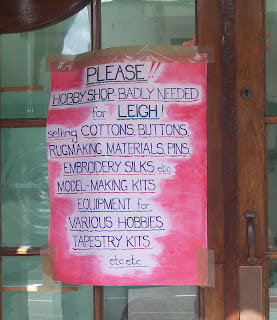 PLEASE!!
HOBBY SHOP BADLY NEEDED
for LEIGH!
selling COTTONS, BUTTONS,
RUGMAKING MATERIALS, PINS,
EMBROIDERY SILKS etc
MODEL-MAKING KITS
EQUIPMENT for
VARIOUS HOBBIES
TAPESTRY KITS
etc etc